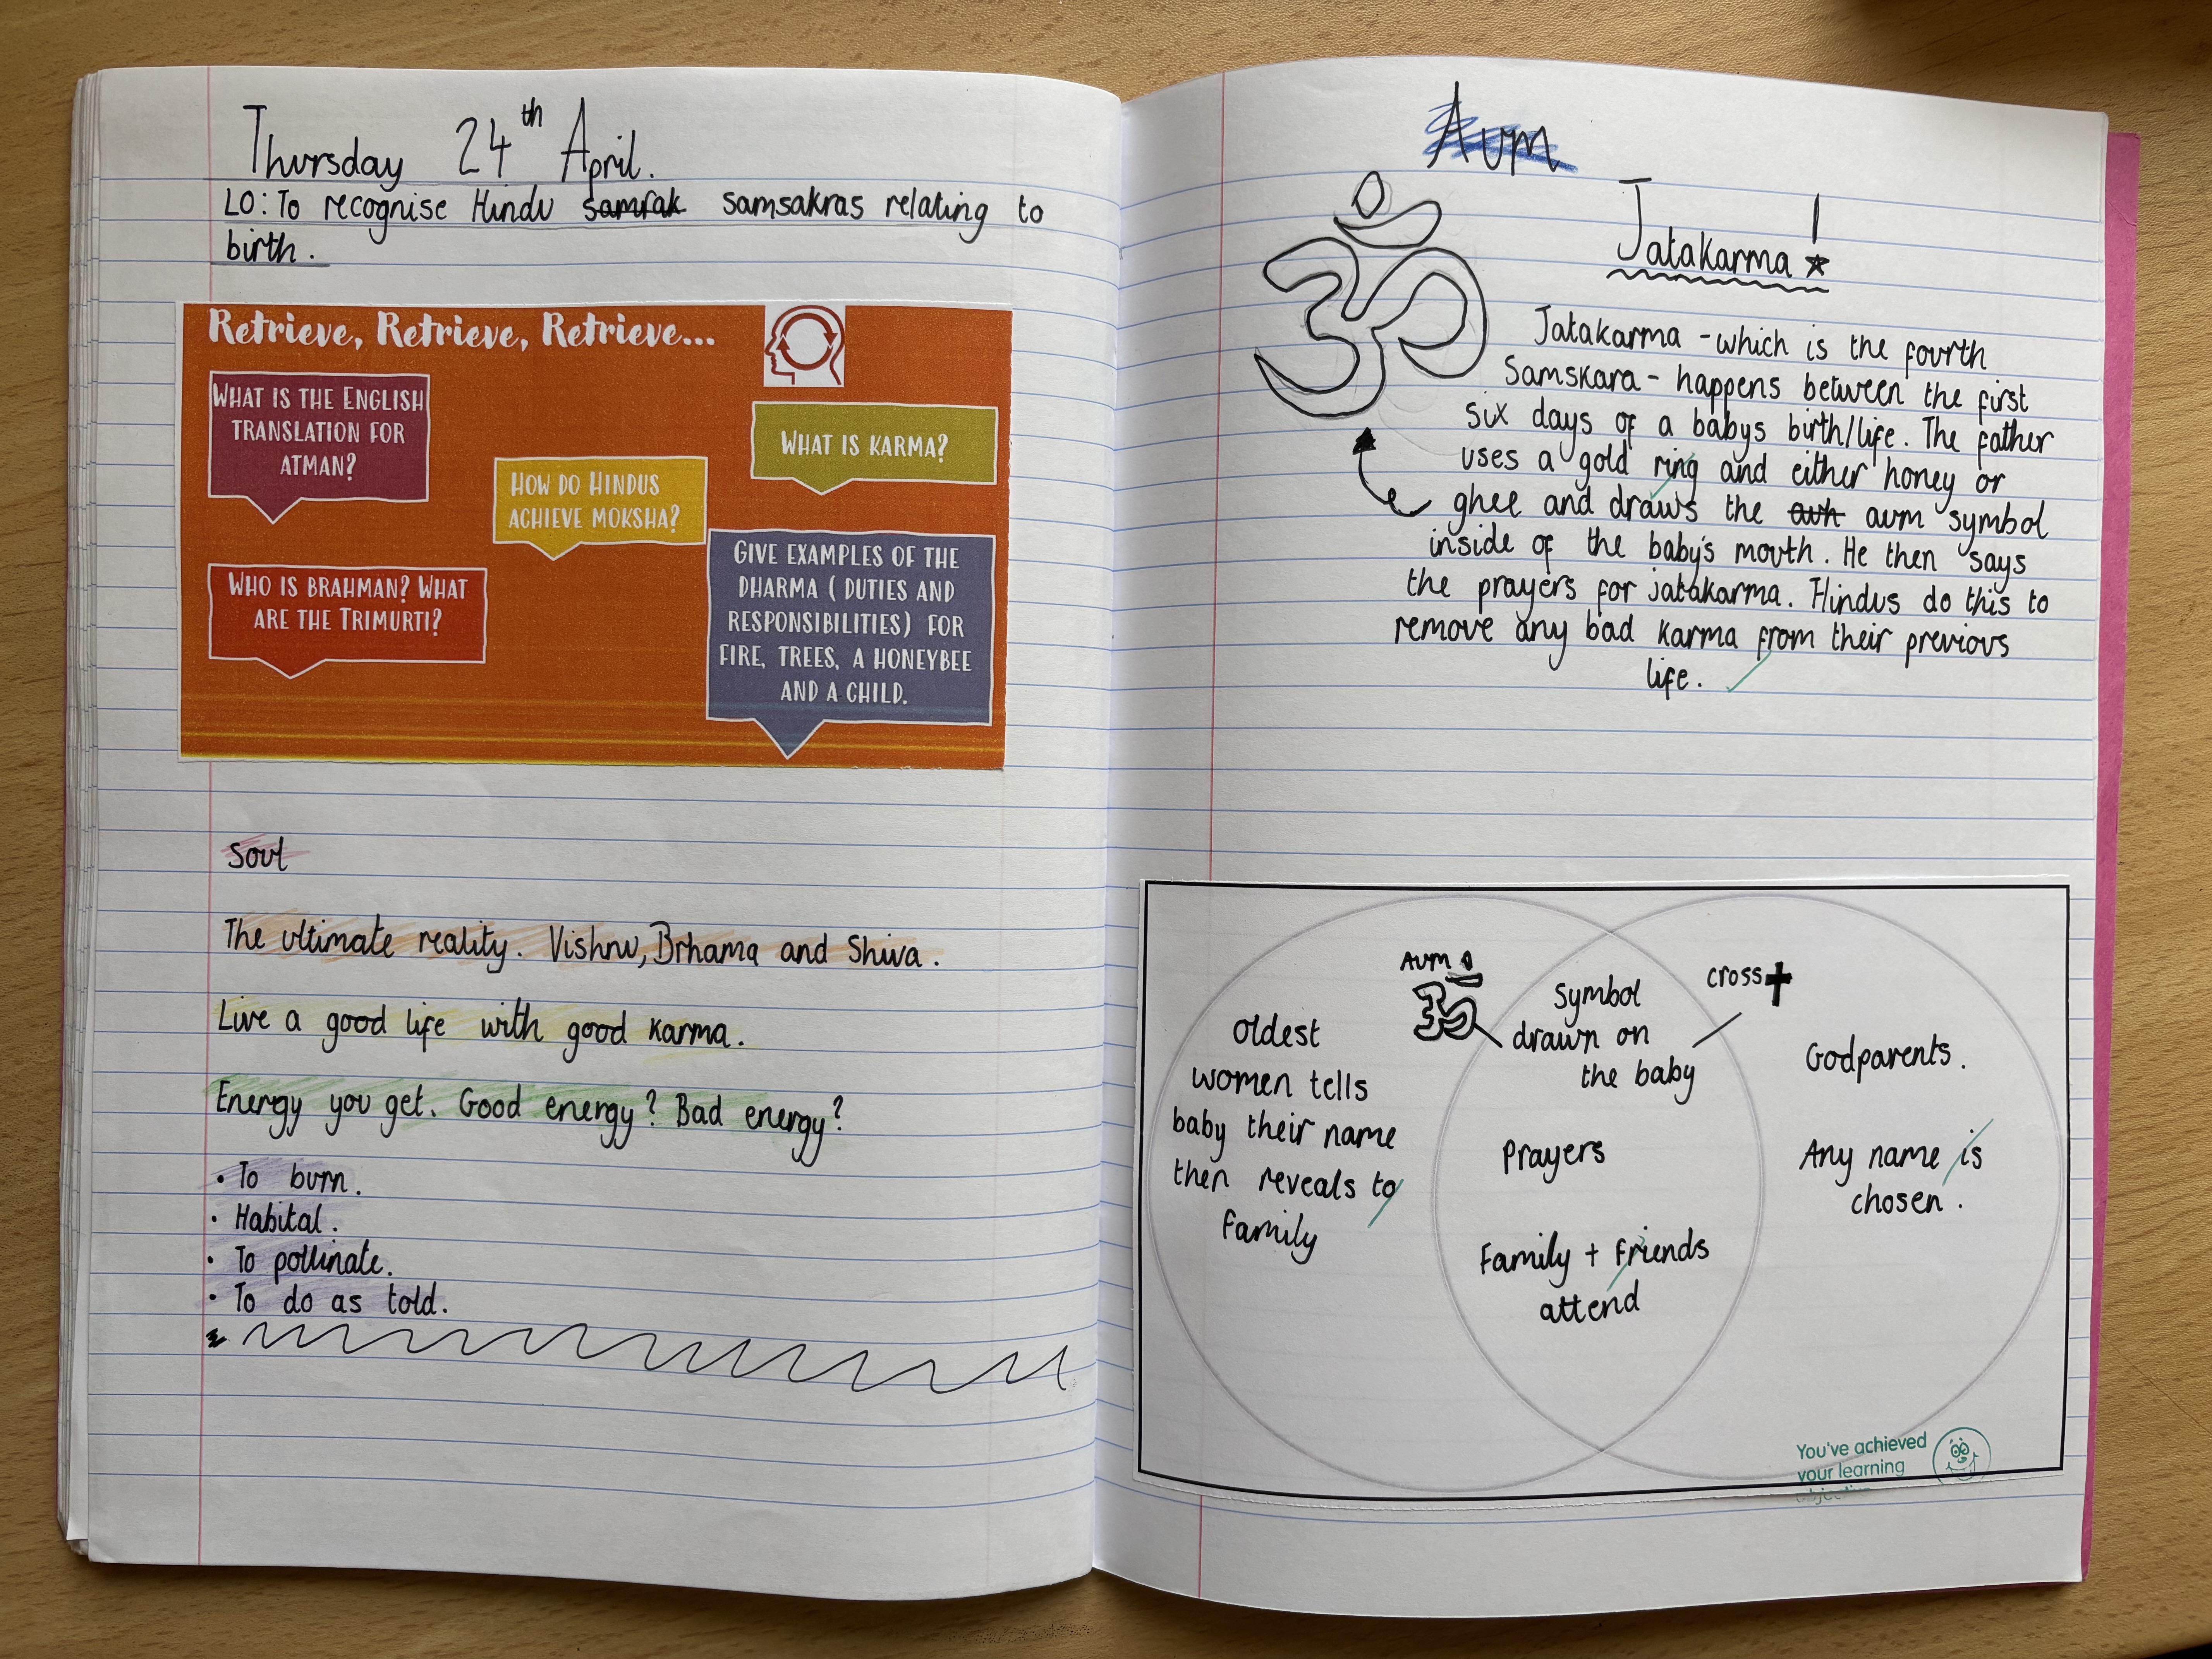 Thursday 24th April.
LO: To recognise Hindu samrak samsakras relating to
birth.
Retrieve, Retrieve, Retrieve...
WHAT IS THE ENGLISH
TRANSLATION FOR
ATMAN?
WHAT IS KARMA?
HOW DO HINDUS
ACHIEVE MOKSHA?
WHO IS BRAHMAN? WHAT
ARE THE TRIMURTI?
GIVE EXAMPLES OF THE
DHARMA ( DUTIES AND
RESPONSIBILITIES) FOR
FIRE, TREES, A HONEYBEE
AND A CHILD.
Soul
The ultimate reality. Vishnu, Brhama and Shiva.
Live a good life with good karma.
Energy you get. Good energy? Bad energy?
• To burn.
• Habital.
• To pollinate.
• To do as told.
Aum
ॐ
Jatakarma!
Jatakarma - which is the fourth
Samskara - happens between the first
six days of a babys birth/life. The father
uses a gold ring and either honey or
ghee and draws the auh aum symbol
inside of the baby's mouth. He then says
the prayers for jatakarma. Hindus do this to
remove any bad karma from their previous
life.
Aum ॐ
Oldest
women tells
baby their name
then reveals to
family
Symbol
drawn on
the baby
Prayers
Family + friends
attend
cross
Godparents.
Any name is
chosen.
You've achieved
your learning
objective